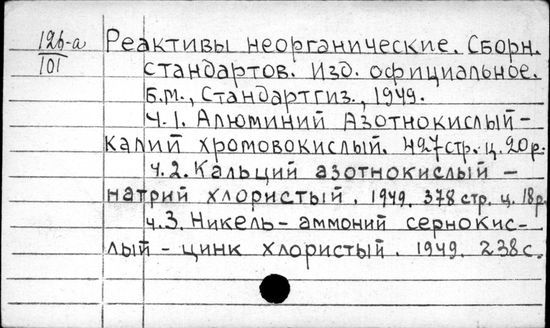 12б-а
101
Реактивы неорганические. Сборн.
стандартов. Изд. официальное.
Б.м., Стандартгиз., 1949.
Ч.1. Алюминий Азотнокислый-
Калий хромовокислый. 427 стр. ц. 20 р.
Ч.2. Кальций азотнокислый -
натрий хлористый. 1949. 378 стр. ц. 18 р.
Ч.3. Никель-аммоний сернокис-
лый - цинк хлористый. 1949. 238 с.